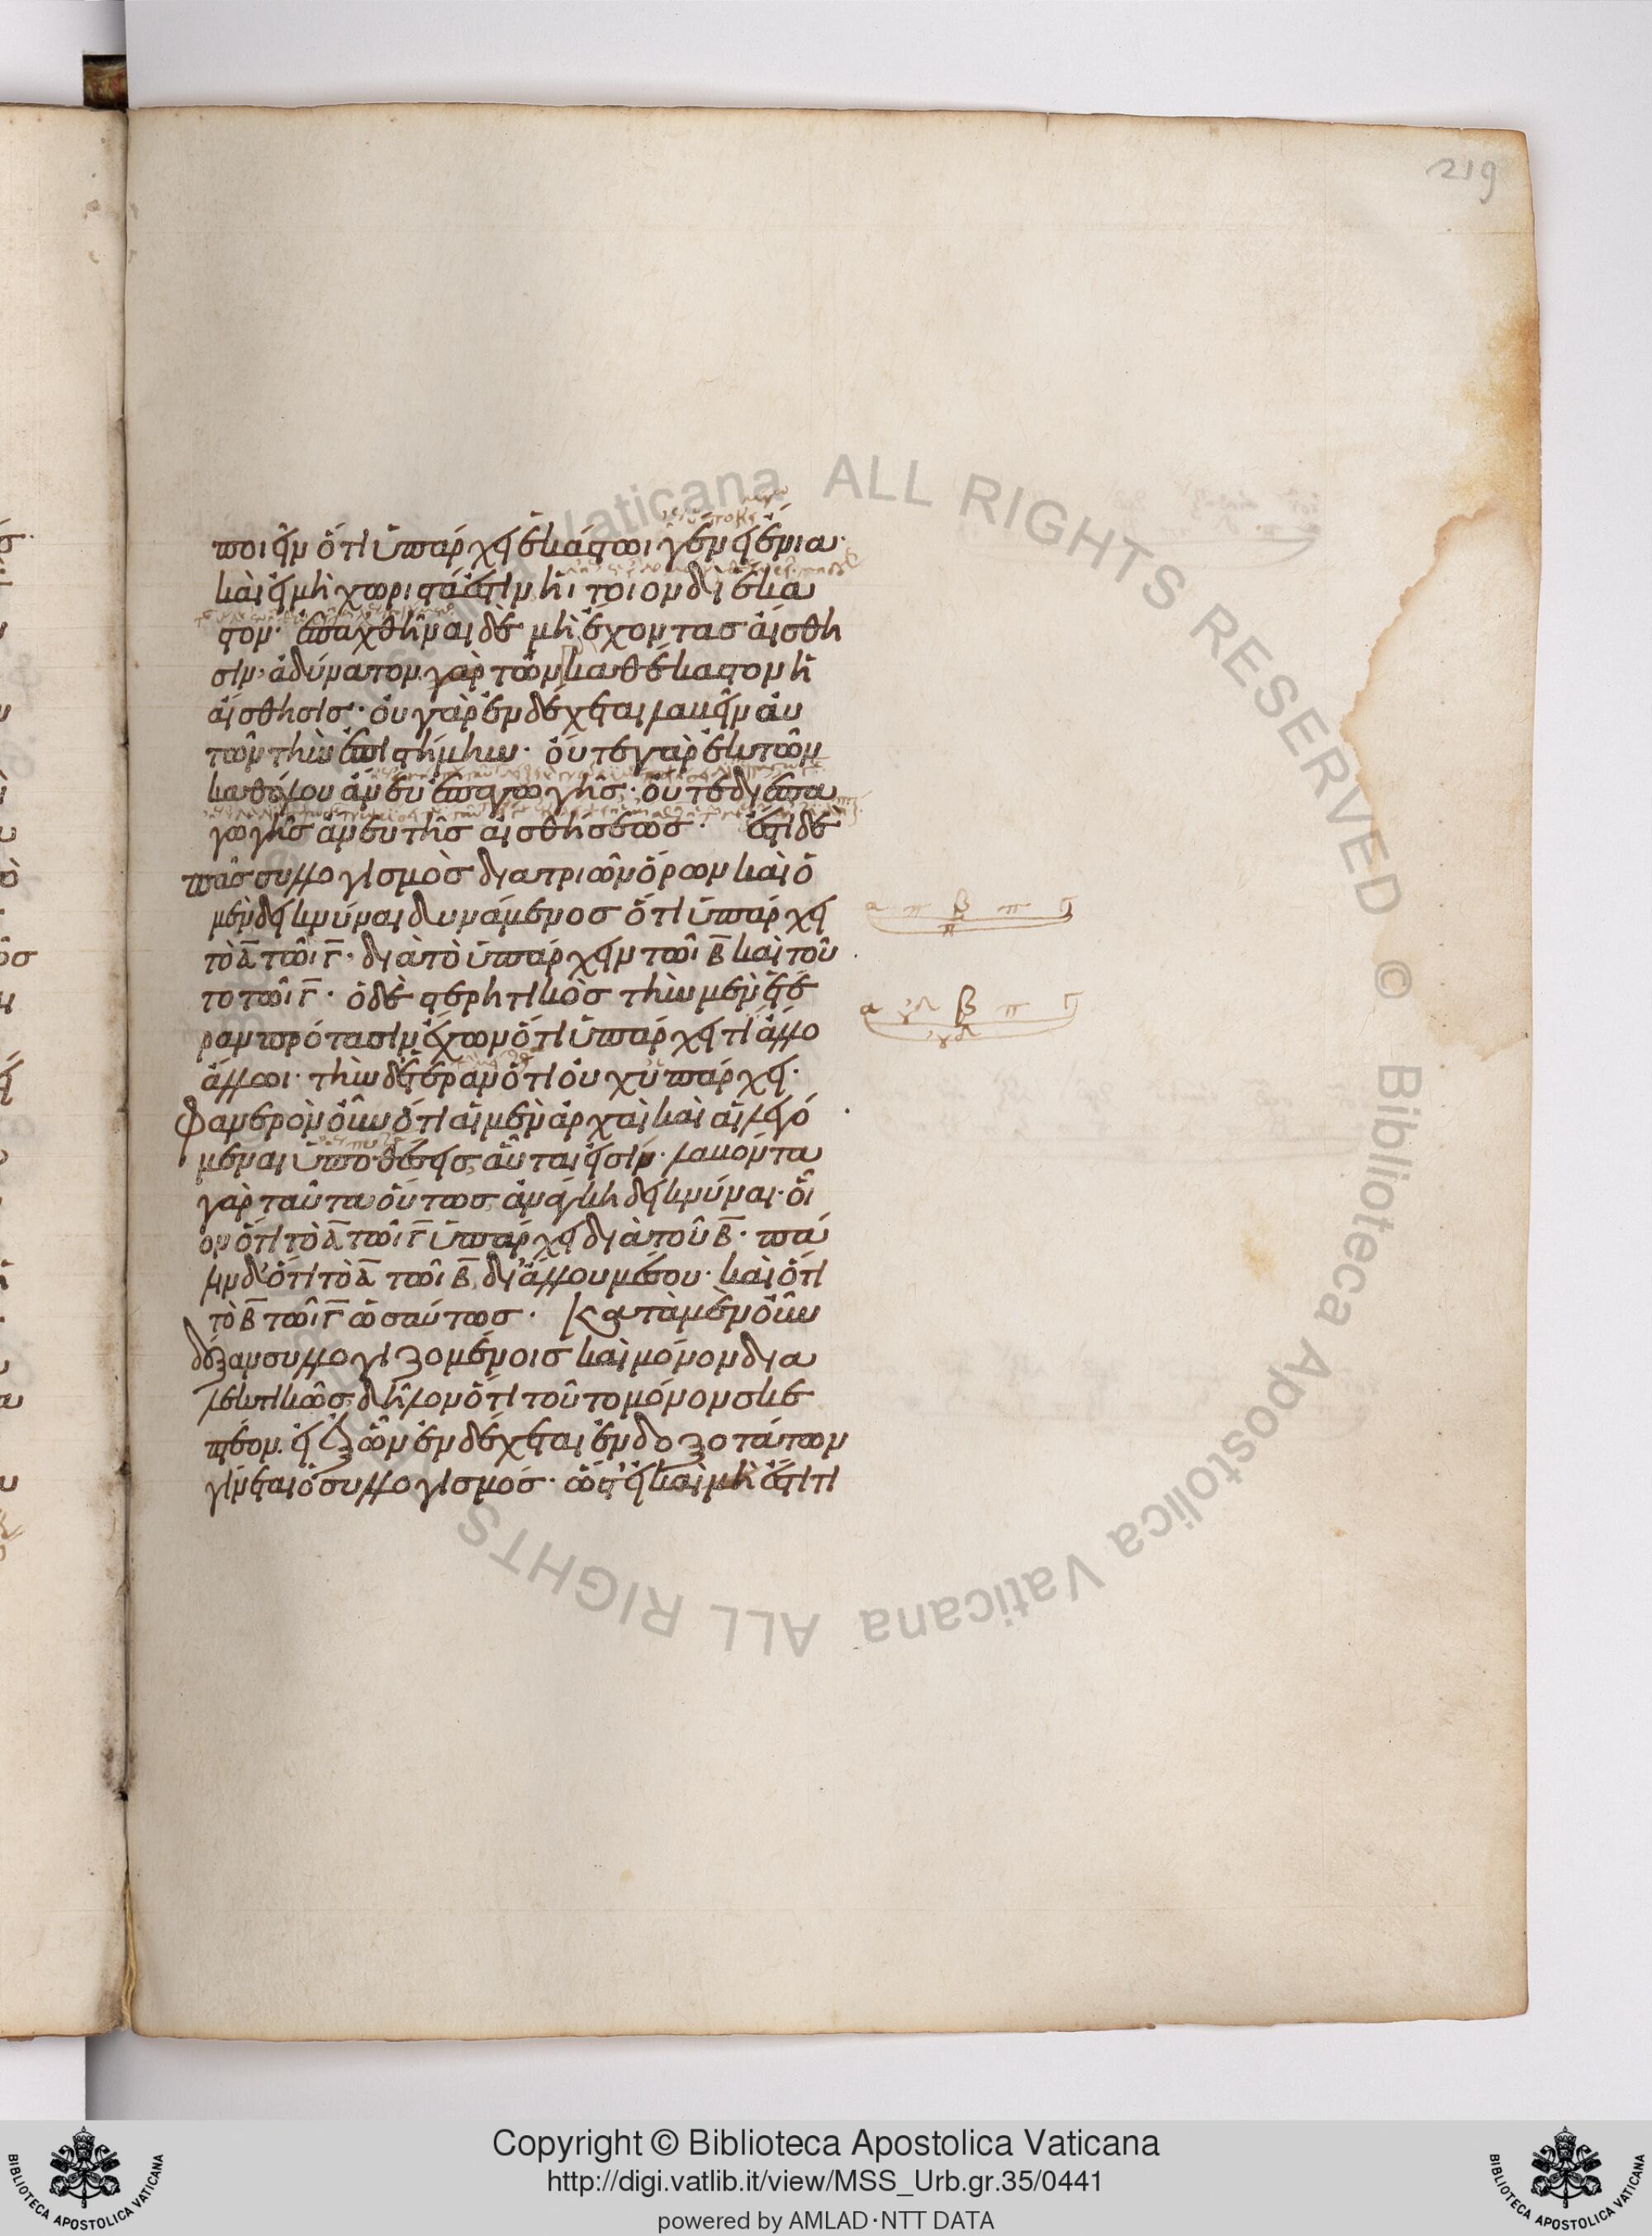 219
ποιεῖν ὅτι ὑπάρχει ἑκάστωι γένει ἔνια·
καὶ εἰ μὴ χωριστά ἐστιν ἧι τοιονδὶ ἕκα
στον· ἐπαχθῆναι δὲ μὴ ἔχοντας αἴσθη
σιν· ἀδύνατον· γὰρ τῶν καθέκαστον ἡ
αἴσθησις· οὐ γὰρ ἐνδέχεται λαβεῖν αὐ
τῶν τὴν ἐπιστήμην· οὔτε γὰρ ἐκ τῶν
καθόλου ἄνευ ἐπαγωγῆς· οὔτε δι' ἐπα
γωγῆς ἄνευ τῆς αἰσθήσεως· ἔστι δὲ
πᾶς συλλογισμὸς διὰ τριῶν ὅρων καὶ ὁ
μὲν δεικνύναι δυνάμενος ὅτι ὑπάρχει
τὸ Α τῶι Γ· διὰ τὸ ὑπάρχειν τῶι Β καὶ τοῦ
το τῶι Γ· ὁ δὲ στερητικὸς τὴν μὲν ἑτέ
ραν πρότασιν ἔχων ὅτι ὑπάρχει τι ἄλλο
ἄλλωι· τὴν δ' ἑτέραν ὅτι οὐχ ὑπάρχει·
φανερὸν οὖν ὅτι αἱ μὲν ἀρχαὶ καὶ αἱ λεγό
μεναι ὑποθέσεις, αὗταί εἰσιν· λαβόντα
γὰρ ταῦτα οὕτως ἀνάγκη δεικνύναι· οἷ
ον ὅτι τὸ Α τῶι Γ ὑπάρχει διὰ τοῦ Β· πά
λιν δ' ὅτι τὸ Α τῶι Β, δι' ἄλλου μέσου· καὶ ὅτι
τὸ Β τῶι Γ ὡσαύτως· κατὰ μὲν οὖν
δόξαν συλλογιζομένοις καὶ μόνον δια
λεκτικῶς, δῆλον ὅτι τοῦτο μόνον σκε
πτέον· εἰ ἐξ ὧν ἐνδέχεται ἐνδοξοτάτων
γίνεται ὁ συλλογισμός· ὥστ' εἰ καὶ μὴ ἔστι τι
α π β π Γ
π
α β π Γ
ALL RIGHTS RESERVED © Biblioteca Apostolica Vaticana
Copyright © Biblioteca Apostolica Vaticana
http://digi.vatlib.it/view/MSS_Urb.gr.35/0441
powered by AMLAD·NTT DATA
BIBLIOTECA APOSTOLICA VATICANA
BIBLIOTECA APOSTOLICA VATICANA